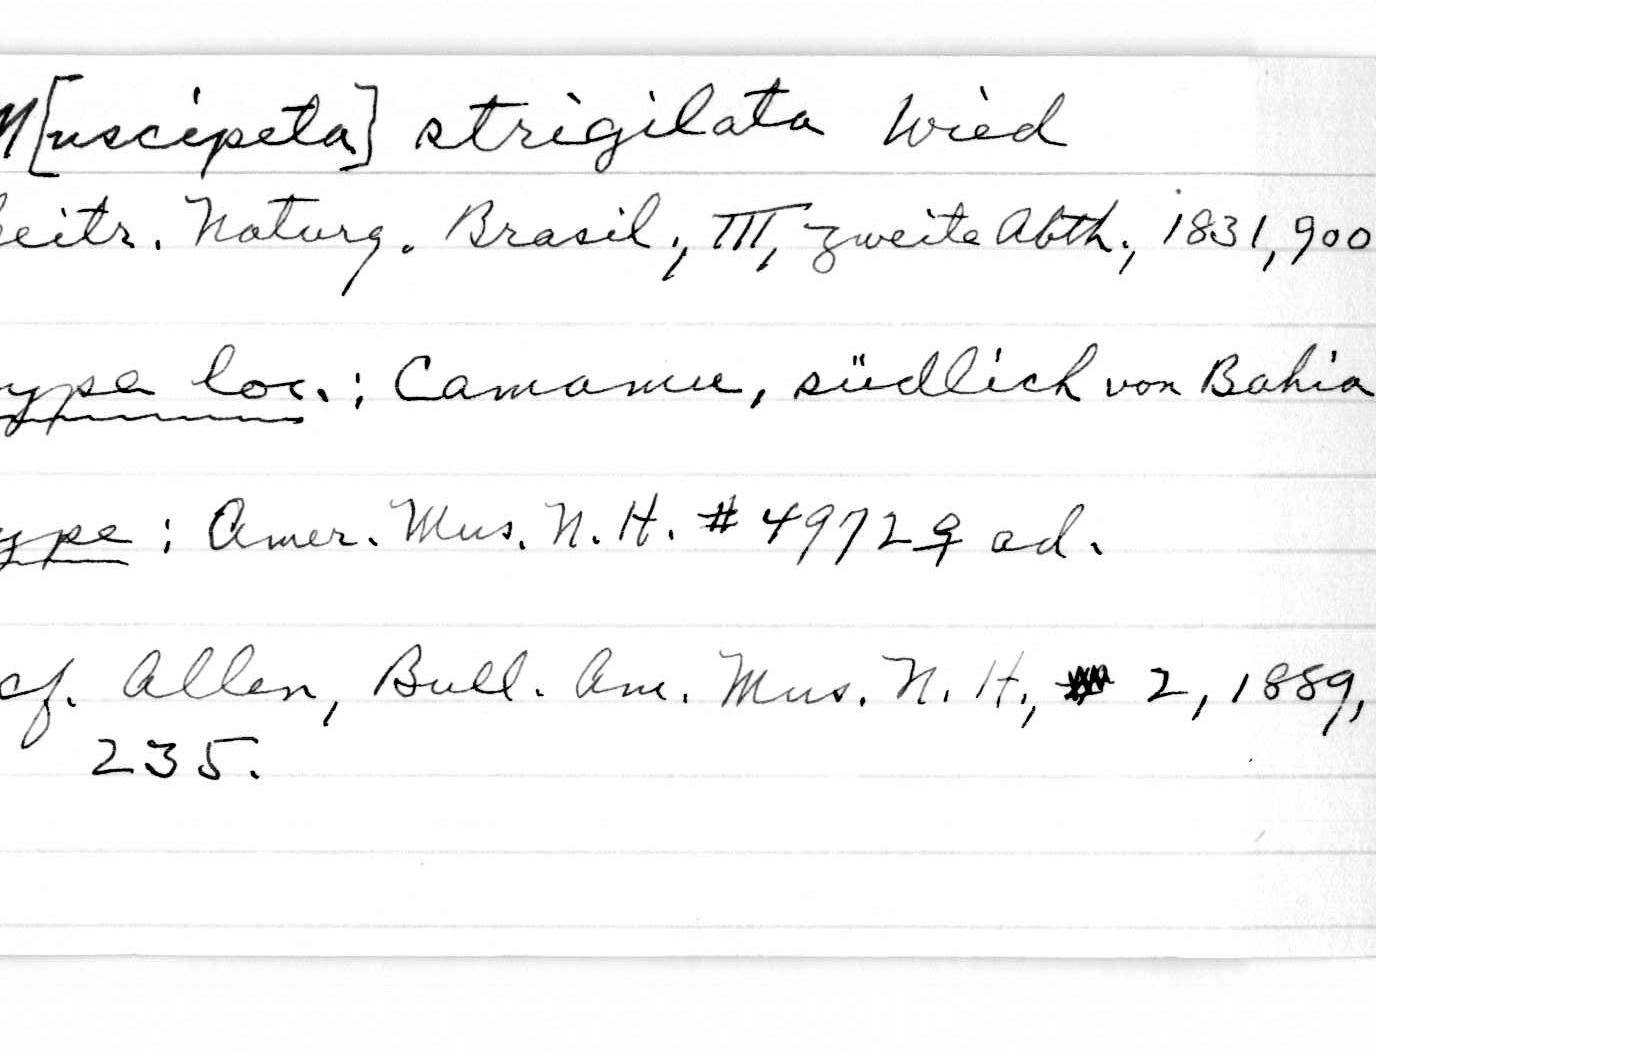 M[uscipeta] strigilata Wied
eitr. Naturg. Brasil., III, zweite Abth., 1831, 900
ype loc.: Camamu, südlich von Bahia
ype : Amer. Mus. N. H. # 4972 ♀ ad.
cf. Allen, Bull. Am. Mus. N. H., 2, 1889,
235.